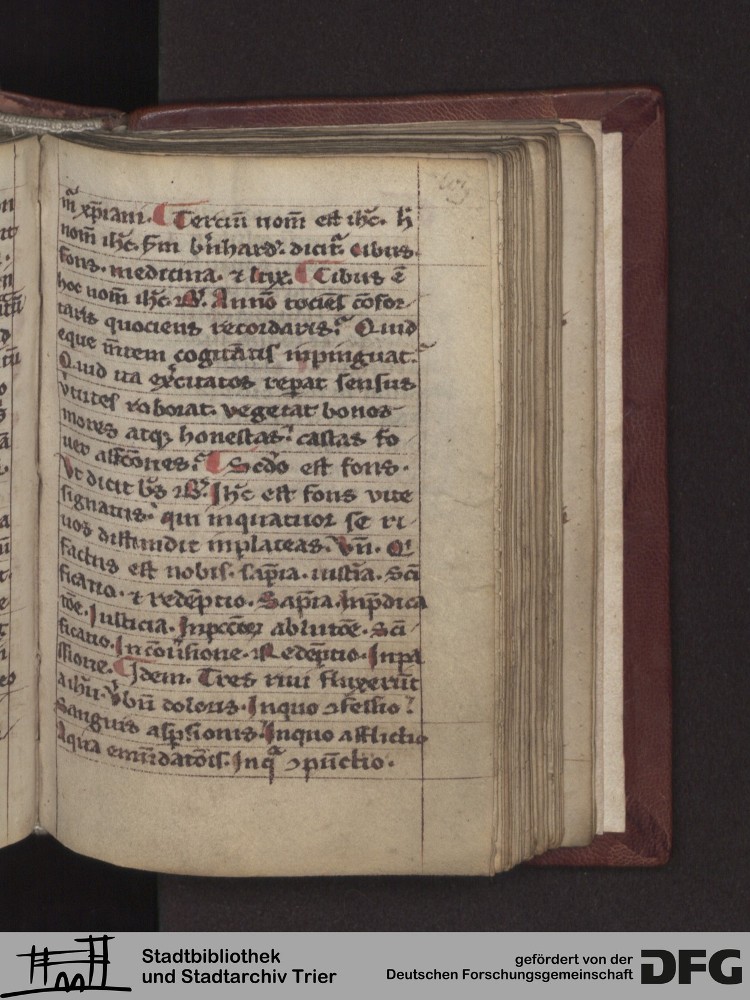 m̄ xp̄iani. Terciū nom̄ est ihc̄. h̄
nom̄ ihc̄. dicit᷑ cibus.
fons. medicina. ⁊ lux. Cibus ē
hoc nom̄ ihc̄. Ann̄o tociēs cōfor
taris quociens recordaris. Quid
eque m̄tem cogitātis inpinguat.
Quid ita ex̄citatos repat sensus
v̄tutes roborat. vegetat bonos
mores atqꝫ honestas. castas fo
uet affc̄ōnes. Sc̄do est fons.
Vt dicit Ihc̄ est fons vite
signatus. qui in se ri
uos diffundit inplateas. Vn̄.
factus est nobis. sap̄ia. iustic̄ia. Sc̄i
ficatio. ⁊ redēptio. Sap̄ia. Inp̄dica
tōe. Iusticia. ablutōe. Sc̄i
ficatio. In cōūsione. Redēptio. Inpa
ssione. Idem. Tres riui fluxerūt
a ihū. doloris. Inquo ꝯfessio.
Sanguis asp̄sionis. Inquo afflictio
Aqua emūdatōis. Inq̊ ꝯpūctio.
Stadtbibliothek
und Stadtarchiv Trier
gefördert von der
Deutschen Forschungsgemeinschaft
DFG